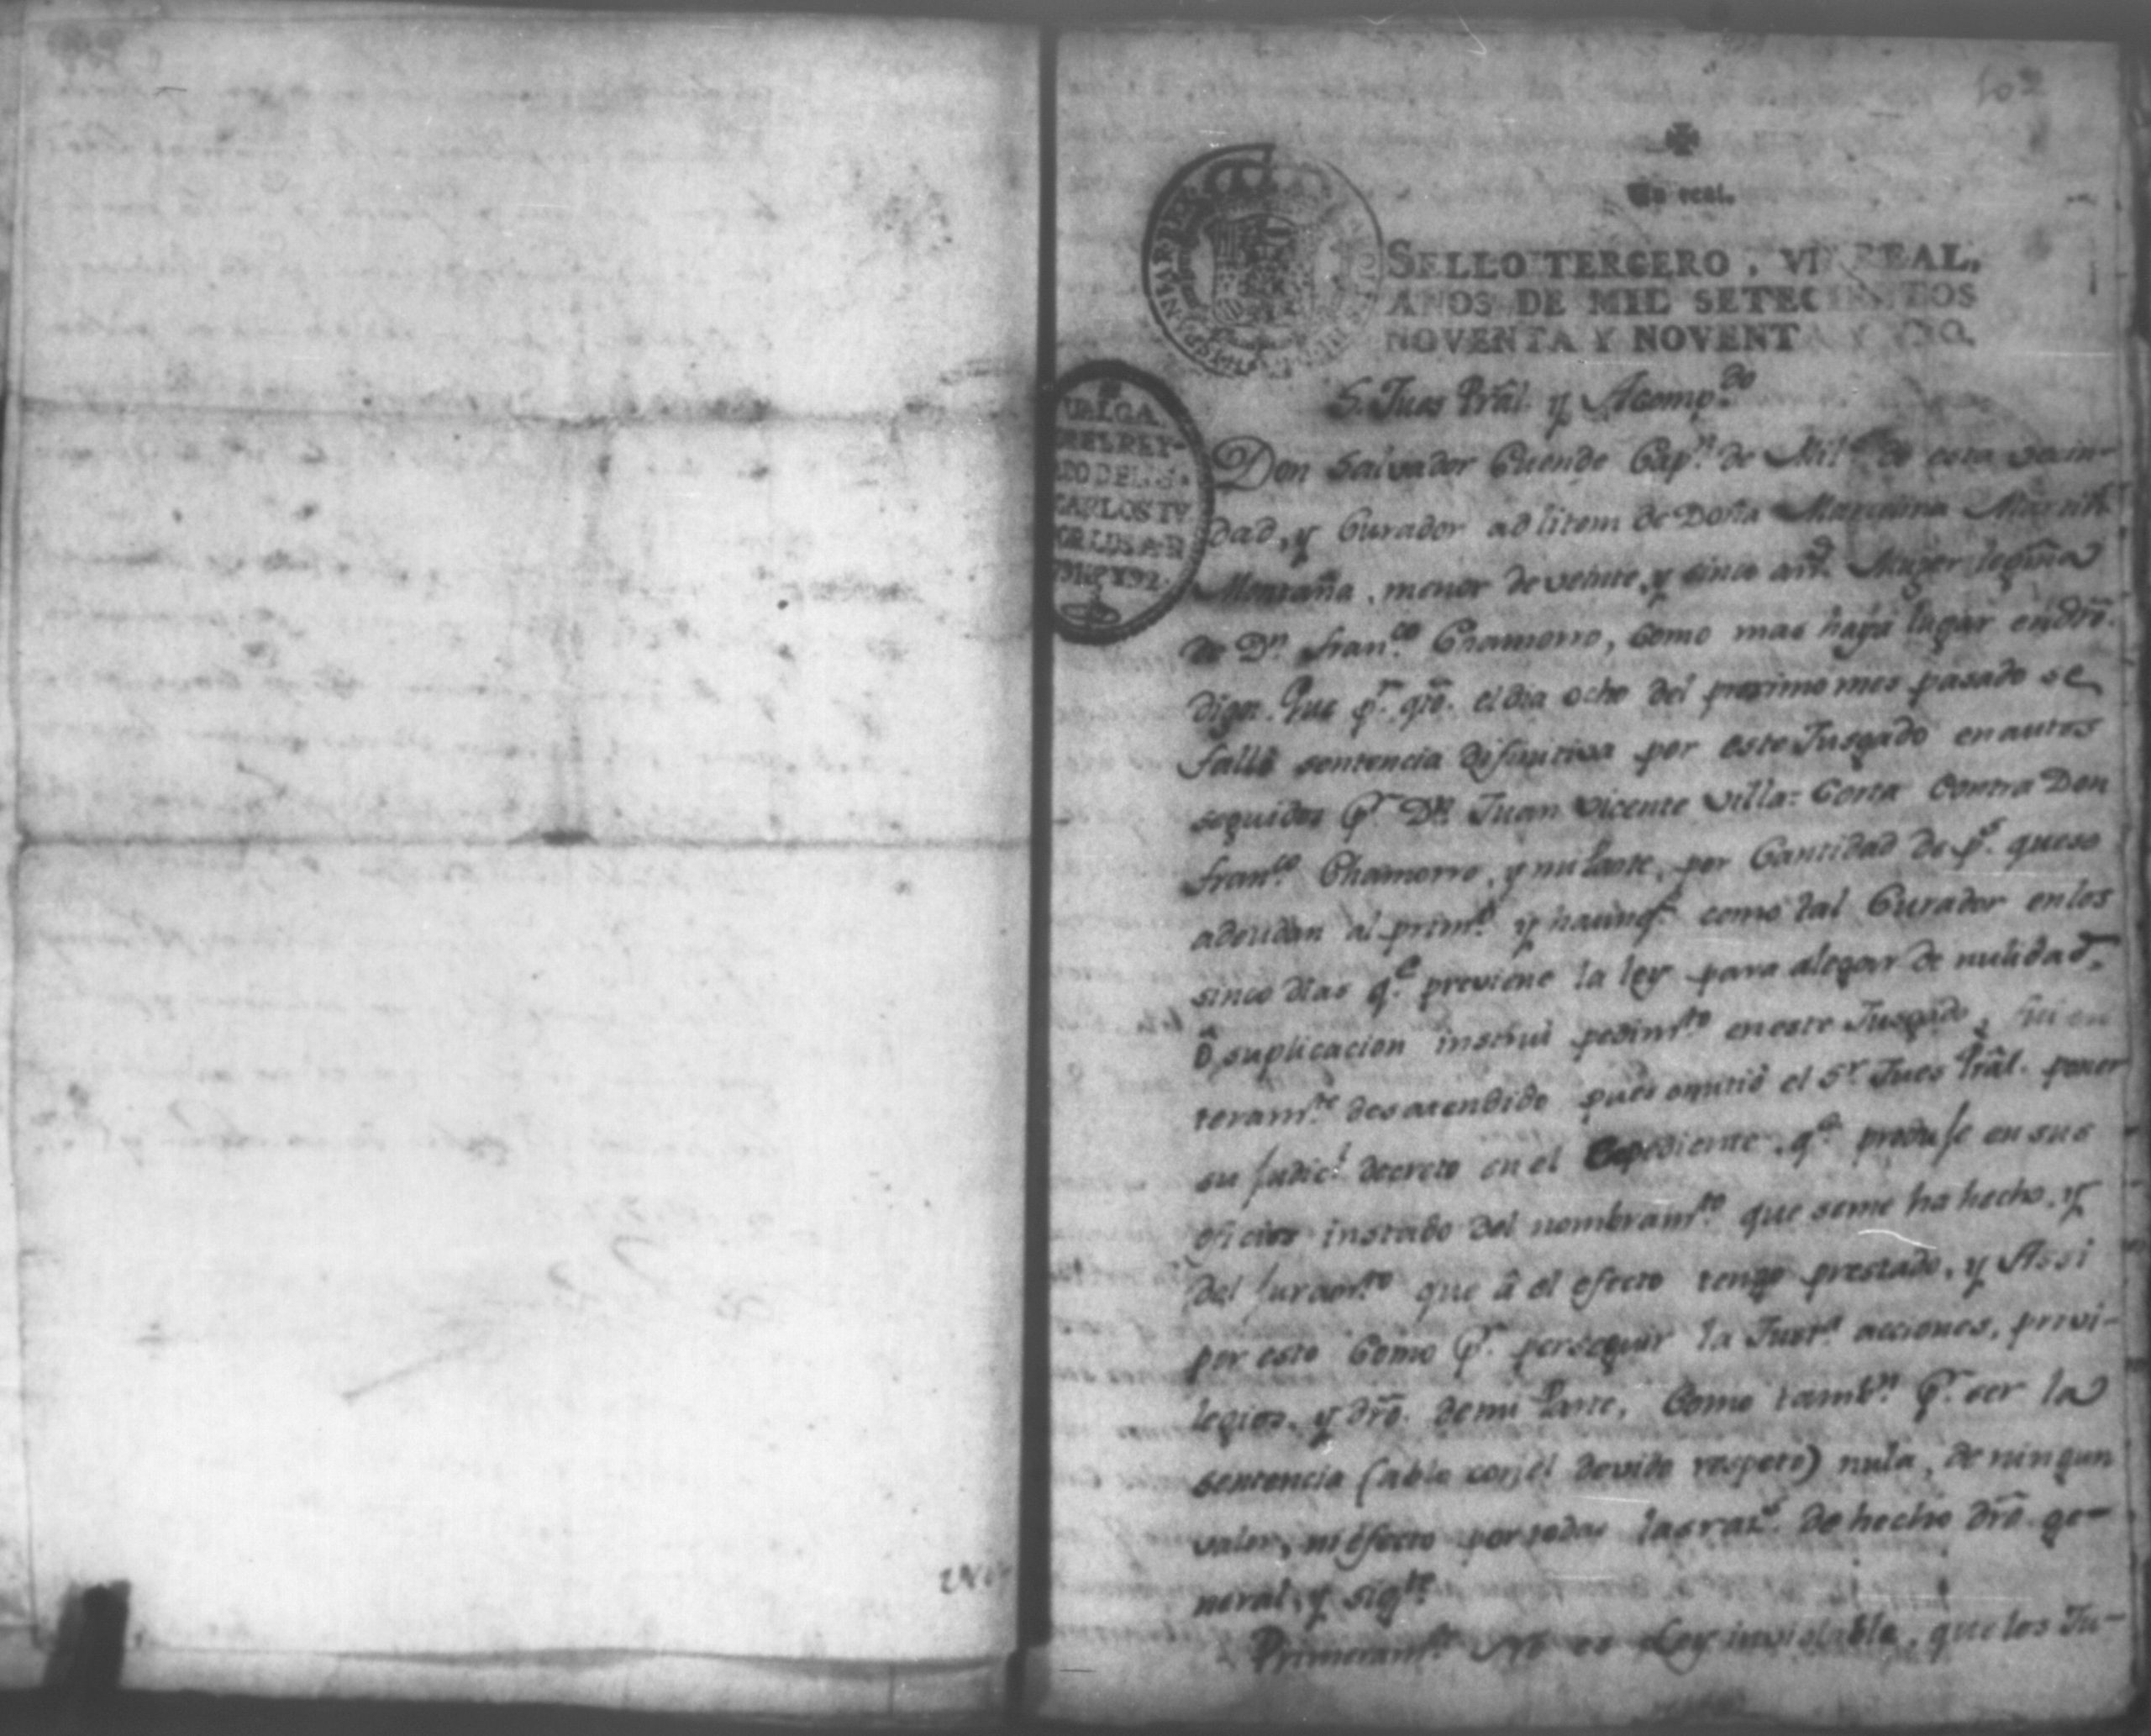 102
Un real.
SELLO TERCERO, VN REAL,
AÑOS DE MIL SETECIENTOS
NOVENTA Y NOVENTA Y VNO.
VALGA
EL REY-
DO DEL S.
CARLOS IV
POR LOS A
Y 92.
S. Jues Prâl. y Acomp.do
Don Salvador Cuende Cap.n de Mil.s de esta vecin-
dad, y Curador ad litem de Doña
Montaña, menor de veinte, y sinco añ.s Muger legma
de Dn. Fran.co Chamorro, como mas haya lugar en dro.
digo. Que pr. qto. el dia ocho del proximo mes pasado se
falló sentencia difinitiva por este Jusgado en autos
seguidos pr. Dn. Juan Vicente Villa=Corta contra Don
Fran.co Chamorro, y mi Parte, por Cantidad de ps. que se
adeudan al prim.o y como tal Curador en los
sinco dias q.e previene la ley para alegar de nulidad,
ô suplicacion instrui pedim.to en este Jusgado, fui en
teram.te desatendido pues omitió el Sr. Jues Prâl. poner
su Judic.l decreto en el Expediente q.e produse en sus
oficios instado del nombram.to que seme ha hecho, y
del Juram.to que â el efecto tengo prestado, y Assi
por esto Como pr. perseguir la Just.a acciones, privi-
legios, y dro. de mi Parte, Como tamb.n pr. ser la
sentencia (ablo con el devido respeto) nula, de ningun
valor, ni efecto por todas las raz.s de hecho dro. ge-
neral, y sig.te
Primeram.te No es Ley inviolable, que los Ju-